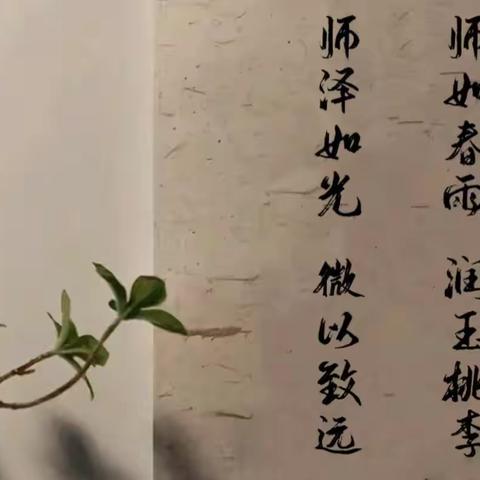 师如春雨 润玉桃李
师泽如光 微以致远